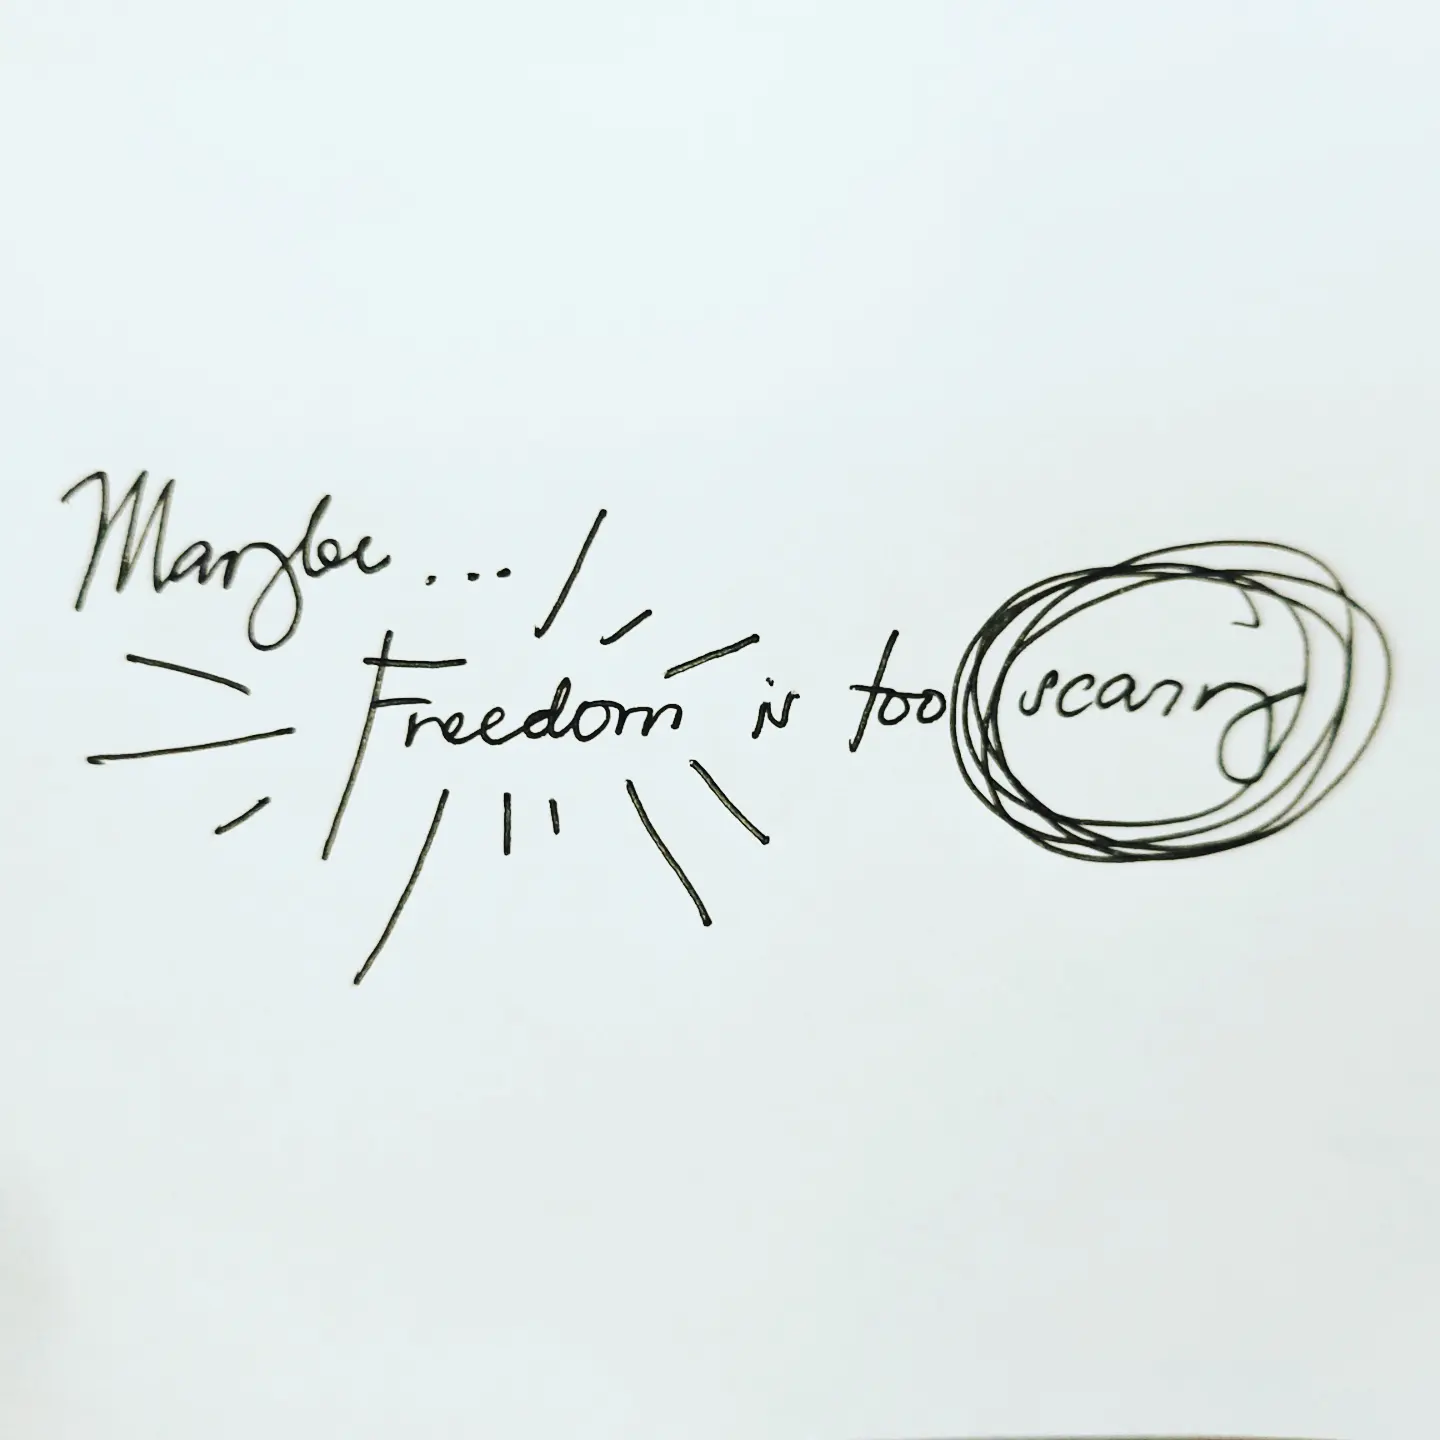 Maybe...
Freedom is too scary